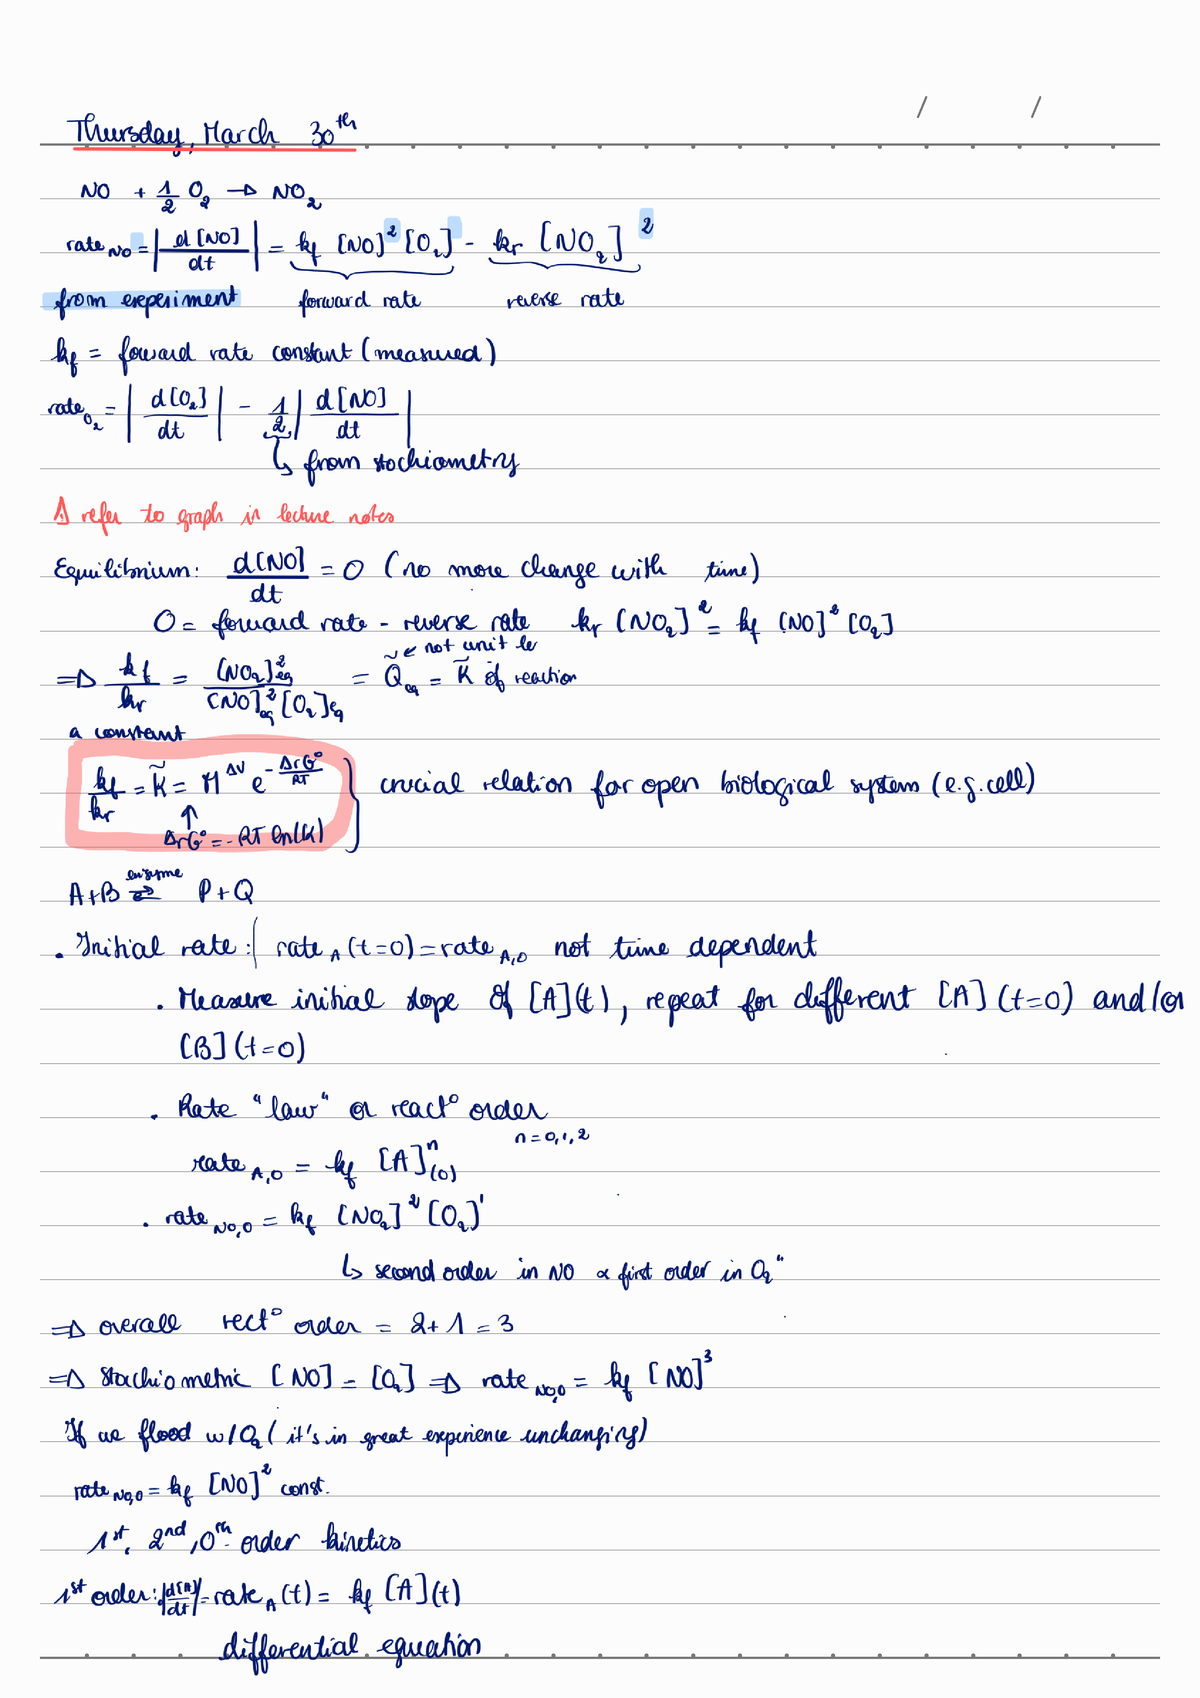 / /
Thursday, March 30th
NO + 1/2 O₂ → NO₂
rate NO = | d[NO]/dt | = kf [NO]² [O₂] - kr [NO₂]²
from experiment forward rate reverse rate
kf = foward rate constant (measured)
rate O₂ = | d[O₂]/dt | - 1/2 | d[NO]/dt |
↳ from stochiometry
Δ refer to graph in lecture notes
Equilibrium: d[NO]/dt = 0 (no more change with time)
0 = forward rate - reverse rate kr [NO₂]² = kf [NO]² [O₂]
~ ← not unit le
⇒ kf/kr = [NO₂]²eq / [NO]²eq [O₂]eq = Q̃eq = K̃ of reaction
a constant
kf/kr = K̃ = M^ΔV e^-ΔrG°/RT } crucial relation for open biological system (e.g. cell)
↑
ΔrG° = -RT ln(K)
enzyme
A+B ⇌ P+Q
. Initial rate: | rate A (t=0) = rate A,0 not time dependent
. Measure initial slope of [A](t), repeat for different [A] (t=0) and/or
[B] (t=0)
. Rate "law" or react° order
n=0,1,2
rate A,0 = kf [A]ⁿ(0)
. rate NO,0 = kf [NO₂]² [O₂]¹
↳ second order in NO & first order in O₂"
⇒ overall rect° order = 2+1=3
⇒ Stochiometric [NO] = [O₂] ⇒ rate NO,0 = kf [NO]³
If we flood w/ O₂ (it's in great experience unchanging)
rate NO,0 = kf [NO]² const.
1st, 2nd, 0th- order kinetics
1st order: |d[A]/dt| = rate A (t) = kf [A](t)
differential equation